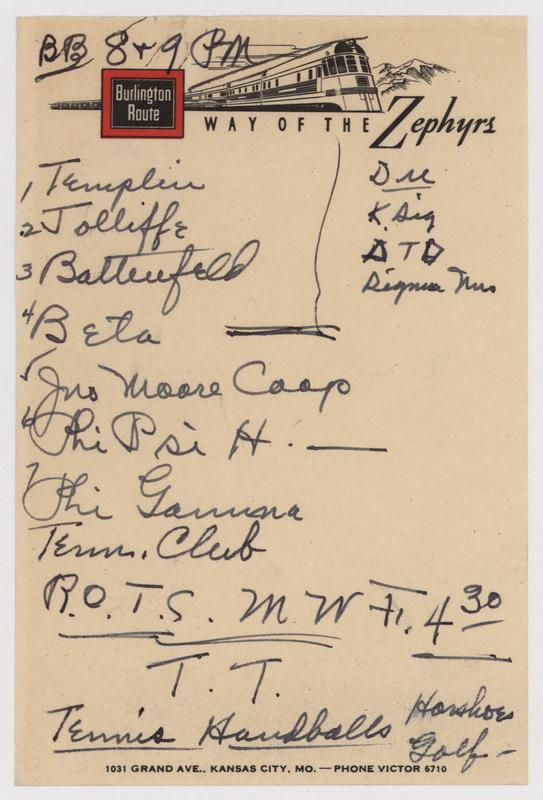 BB 8 + 9 PM
Burlington
Route
WAY OF THE Zephyrs
1 Templin
2 Jolliffe
3 Battenfeld
4 Beta
5 Jno Moore Coop
6 Phi Psi H. —
7 Phi Gamma
Tenn. Club
D U
K Sig
D T D
Sigma Nu
R.O.T.S. M W Fr. 4 30
T. T.
Tennis Handballs Horshoes
Golf -
1031 GRAND AVE., KANSAS CITY, MO. — PHONE VICTOR 6710